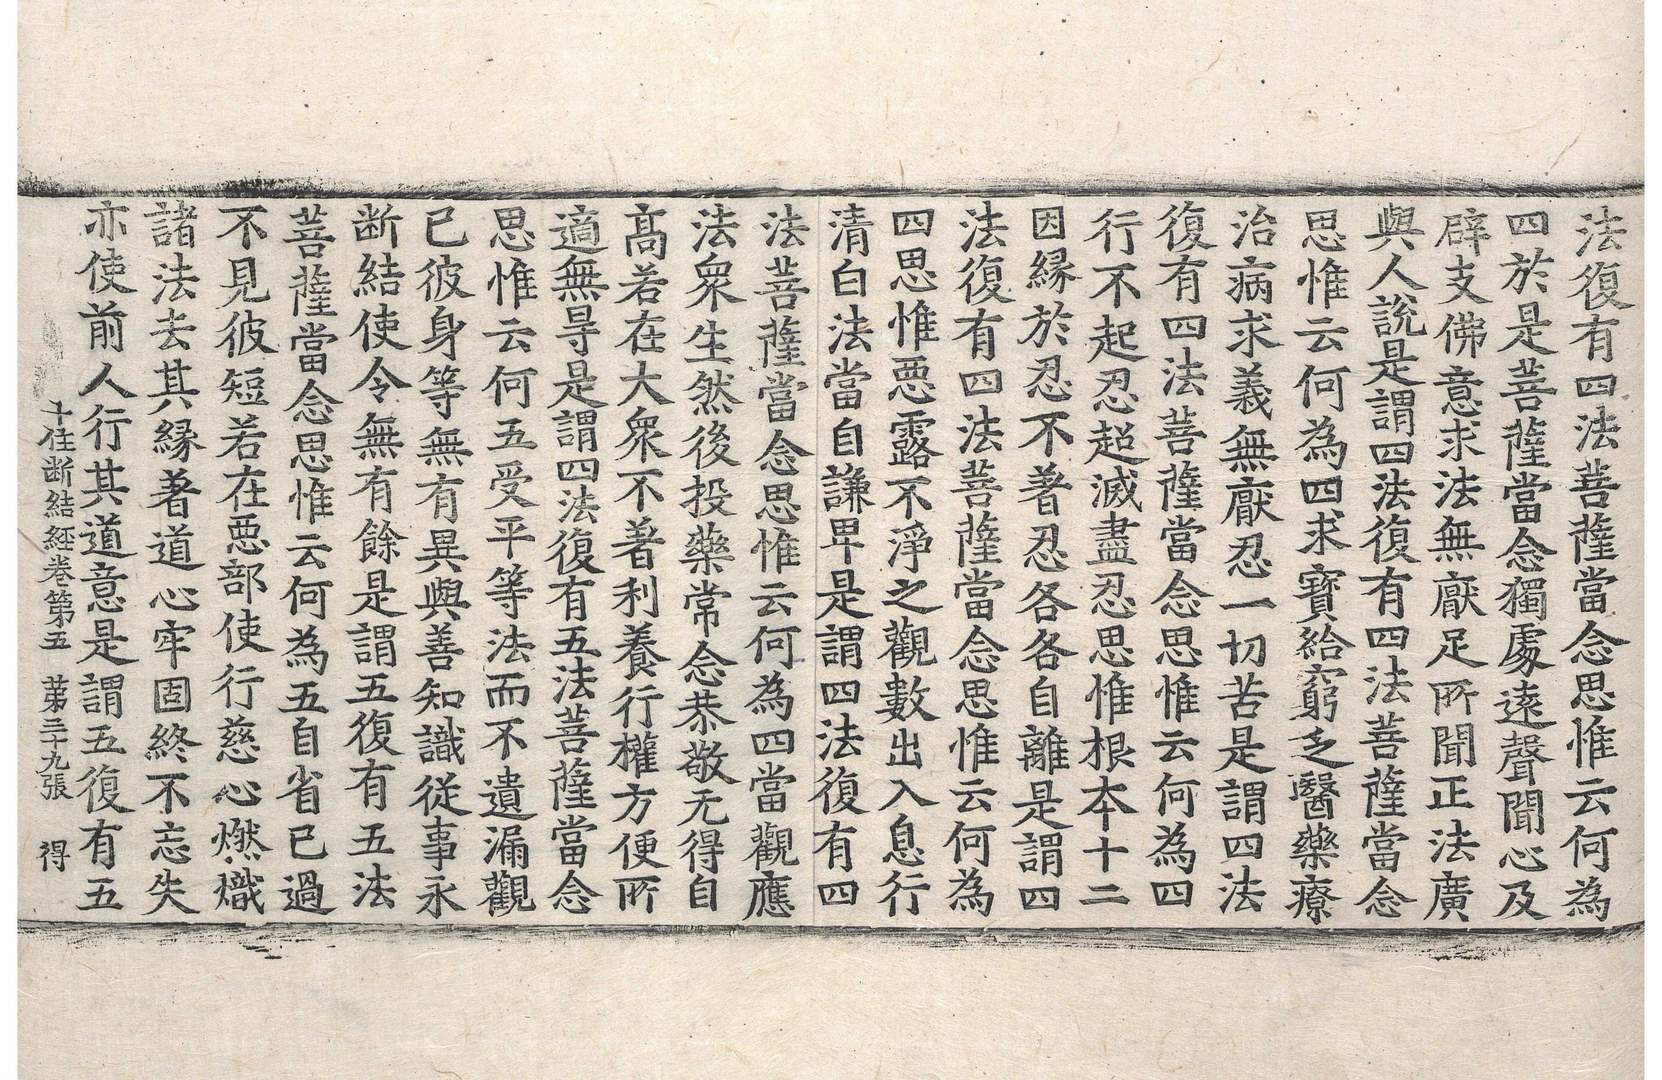 法復有四法菩薩當念思惟云何為
四於是菩薩當念獨處遠聲聞心及
辟支佛意求法無厭足所聞正法廣
與人說是謂四法復有四法菩薩當念
思惟云何為四求寶給窮乏醫藥療
治病求義無厭忍一切苦是謂四法
復有四法菩薩當念思惟云何為四
行不起忍起滅盡忍思惟根本十二
因緣於忍不著忍各各自離是謂四
法復有四法菩薩當念思惟云何為
四思惟惡露不淨之觀數出入息行
清白法當自謙卑是謂四法復有四
法菩薩當念思惟云何為四當觀應
法眾生然後投藥常念恭敬无得自
高若在大眾不著利養行權方便所
適無㝵是謂四法復有五法菩薩當念
思惟云何五受平等法而不遺漏觀
已彼身等無有異與善知識從事永
断結使令無有餘是謂五復有五法
菩薩當念思惟云何為五自省己過
不見彼短若在惡部使行慈心燃熾
諸法去其緣著道心牢固終不忘失
亦使前人行其道意是謂五復有五
十住断結經卷第五 苐三十九張 得